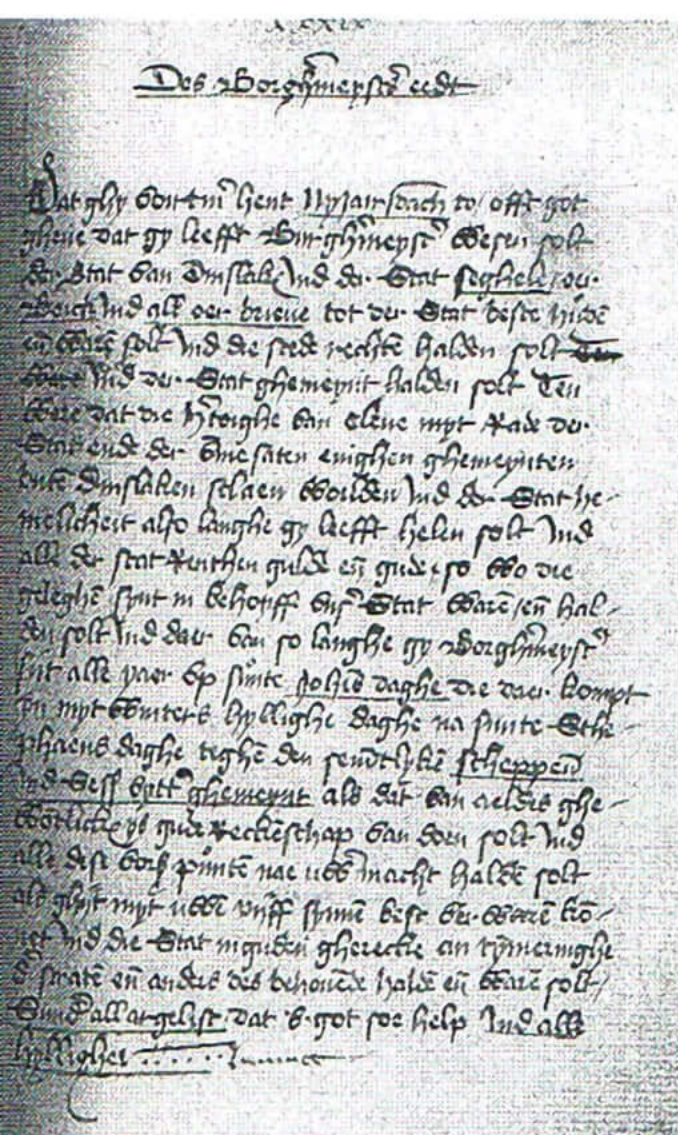 Des Borghmeysters eedt
Dat ghy von tm hent Nyjairsdach to / offt got
gheve dat gy leefft Burghmeyster wesen solt
der Stat van Dinslaken Ind der Stat seghell / oer
Boick Ind all oer brieve tot der Stat beste huden
en waren solt Ind die stede rechten halden solt
Ind der Stat ghemeynt halden solt Ten
were dat die hertoighe van Cleve myt Rade der
Stat ende der saten enighen ghemeynten
buten Dinslaken slaen wolden Ind der Stat he-
melicheit also langhe gy leefft helen solt Ind
alle der stat Renthen gulde en gude, so wo die
geleghen synt in behoyff unser Stat waren / en hal-
den solt Ind daer van so langhe gy Borghmeyster
sijt alle yaer op sunte Johans daghe die daer kompt
in mytwinters hyllighe daghe na sunte Ste-
phaens daghe teghen den semtlyken scheppen
Ind Sess uytter ghemeynt als dat van aeldis ghe-
woentlick ys gude Reckenschap van doen solt Ind
alle dese vors punten nae uwer macht halden solt
als ghijt myt uwen vijff synnen best ver waren kon-
net Ind die Stat in guden gherecke an tymeringhe
straten en anders des behouende halden en waren solt /
Sunder all argelist dat u got soe help Ind alle
hyllighen